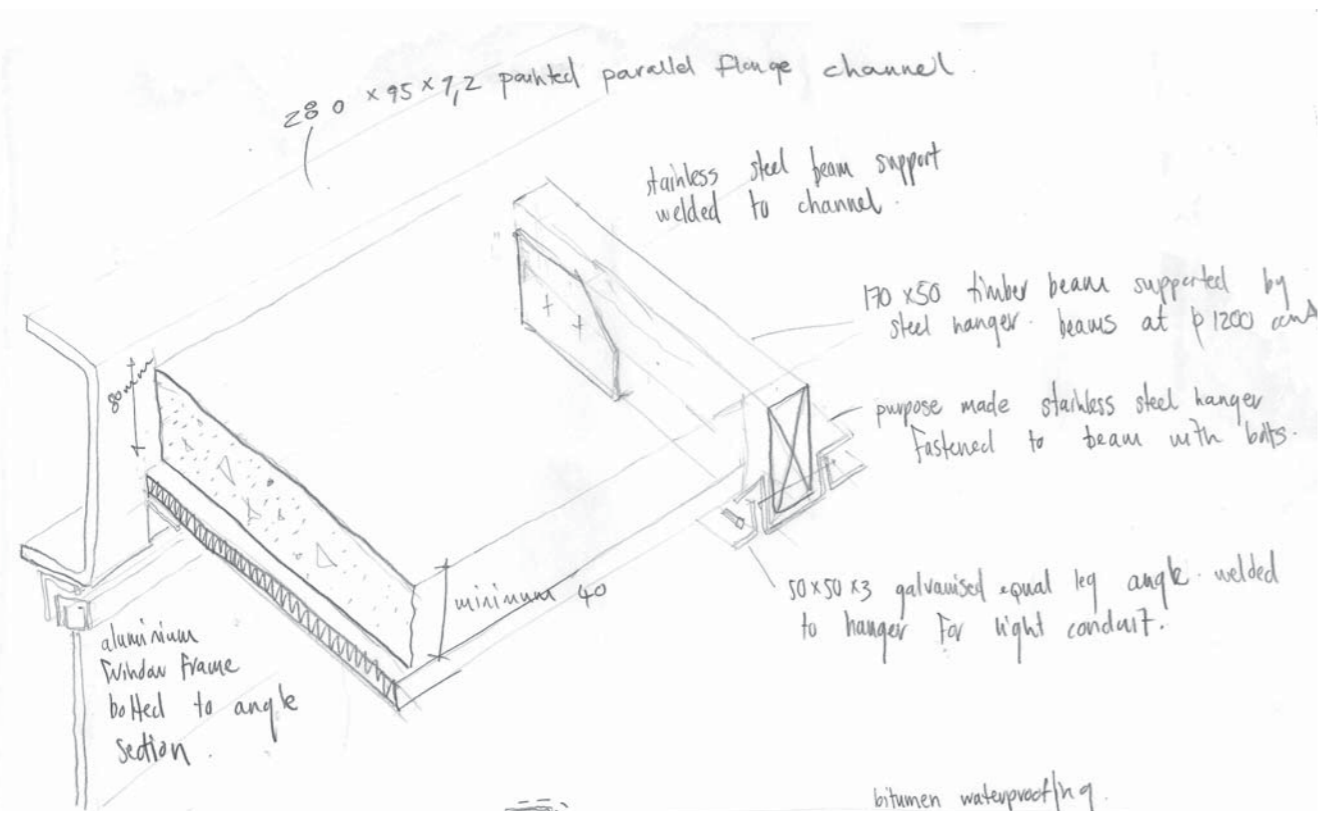 280 x 95 x 7,2 painted parallel flange channel.
stainless steel beam support
welded to channel.
170 x50 timber beam supported by
steel hanger. beams at 1200
purpose made stainless steel hanger
fastened to beam with bolts.
80mm
minimum 40
50x50 x3 galvanised equal leg angle. welded
to hanger for light conduit.
aluminium
window frame
bolted to angle
section.
bitumen waterproofing.